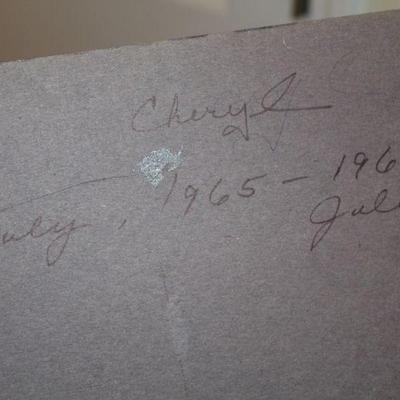 Cheryl
July, 1965 - 196
Jul